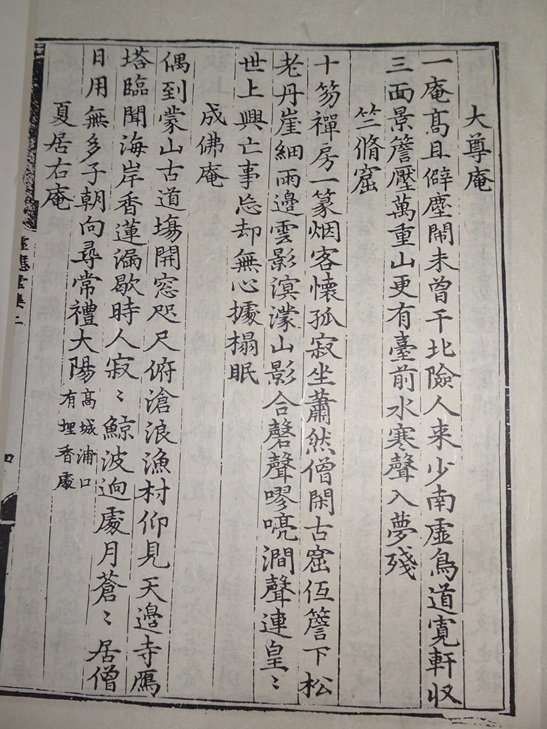 大尊庵
一庵高且僻塵閙未曾干北險人来少南虛鳥道寬軒収
三面景簷壓萬重山更有臺前水寒聲入夢殘
竺脩窟
十笏禪房一篆烟客懷孤寂坐蕭然僧閑古窟伍簷下松
老丹崖細雨邉雲影溟濛山影合磬聲嘐喨澗聲連皇〻
世上興亡事忘却無心據榻眠
成佛庵
偶到蒙山古道塲開窓咫尺俯滄浪漁村仰見天邉寺鴈
塔臨聞海岸香蓮漏歇時人寂〻鯨波逈處月蒼〻居僧
日用無多子朝向尋常禮大陽高城浦口
有埋香處
夏居右庵